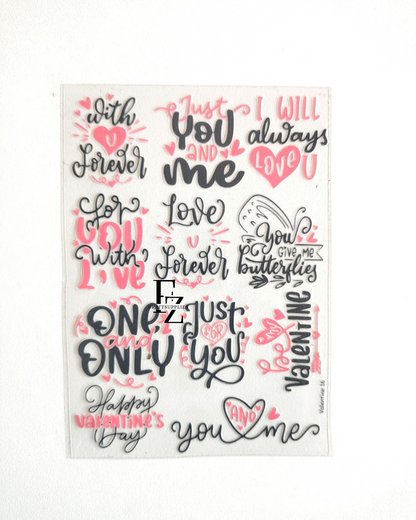 with
U
Forever
Just
YOU
AND
me
I WILL
always
LOVE U
for
YOU
With
LOVE
Love
U
Forever
You
GIVE ME
butterflies
ONE
and
ONLY
Just
FOR
You
be my
VALENTINE
Happy
VALENTINE'S
Day
you AND me
EZ
Valentine 16